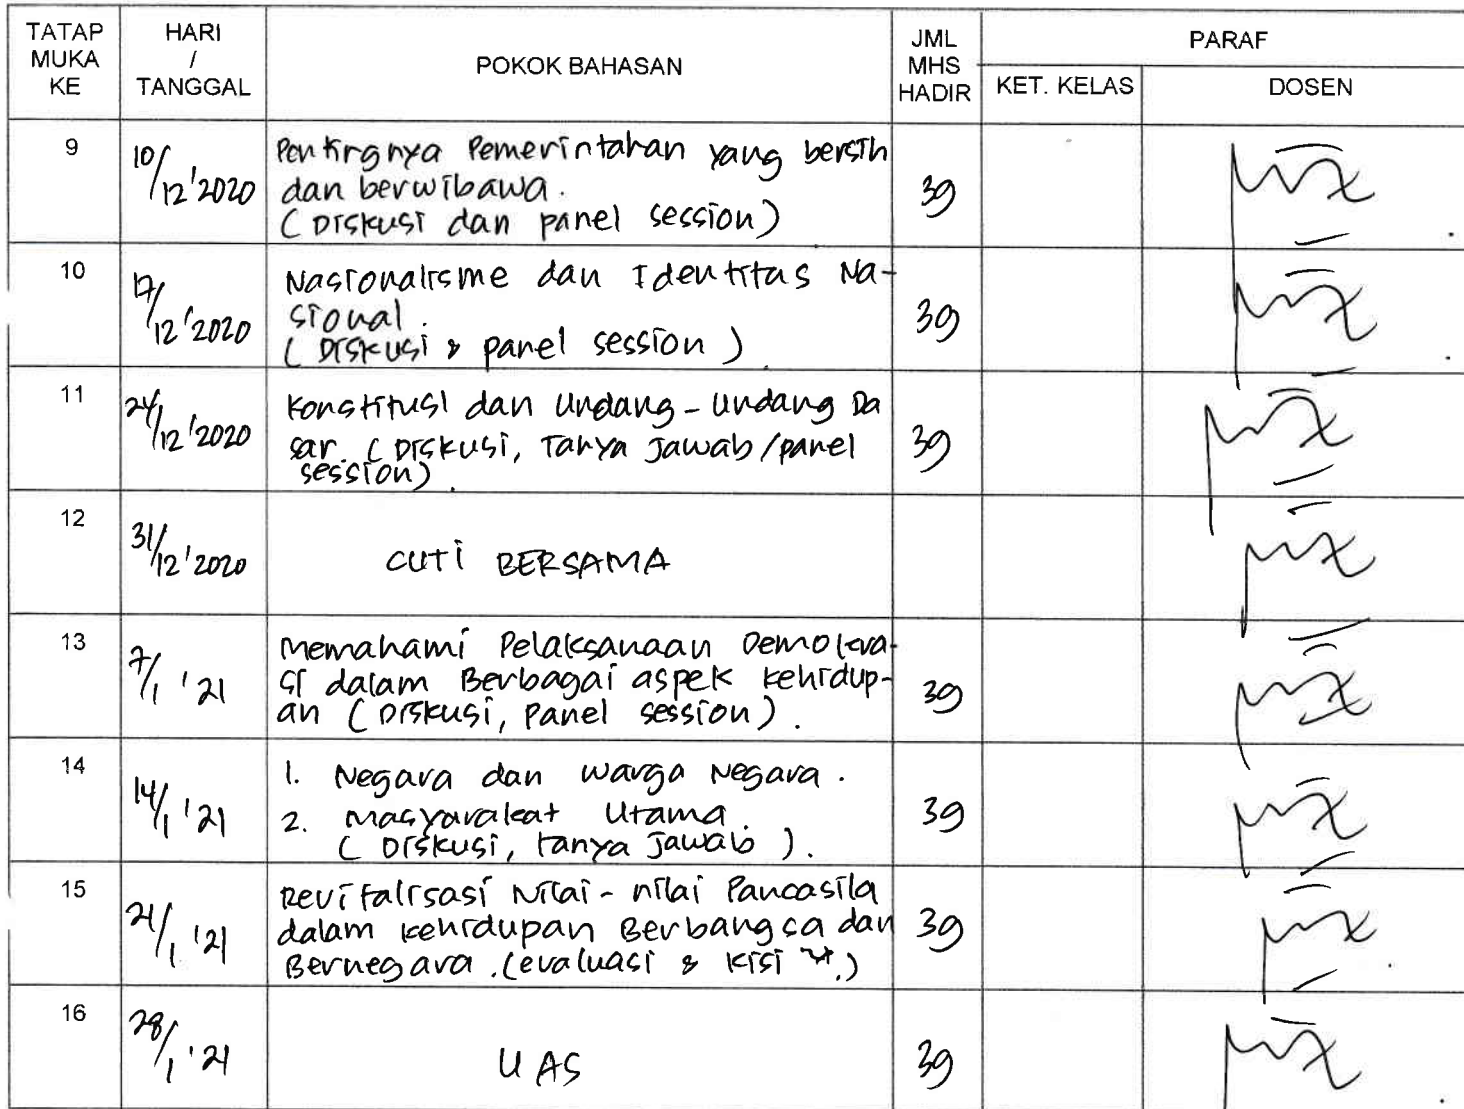 TATAP MUKA KE HARI / TANGGAL POKOK BAHASAN JML MHS HADIR PARAF
KET. KELAS DOSEN
9 10/12'2020 Pentingnya Pemerintahan yang bersih
dan berwibawa.
(Diskusi dan panel session) 39
10 17/12'2020 Nasionalisme dan Identitas Na-
sional.
(Diskusi & panel session) 39
11 24/12'2020 Konstitusi dan Undang-Undang Da
sar. (Diskusi, Tanya Jawab/panel
session). 39
12 31/12'2020 CUTI BERSAMA
13 7/1 '21 Memahami Pelaksanaan Demokra-
si dalam Berbagai aspek kehidup-
an (Diskusi, Panel session). 39
14 14/1 '21 1. Negara dan Warga Negara.
2. Masyarakat Utama.
(Diskusi, tanya Jawab). 39
15 21/1 '21 Revitalisasi Nilai-nilai Pancasila
dalam kehidupan Berbangsa dan
Bernegara. (evaluasi & kisi ²+.) 39
16 28/1 '21 UAS 39